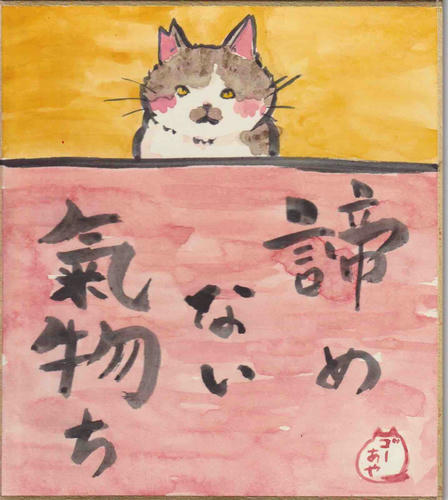 諦め
ない
氣物ち
ゴー
あや